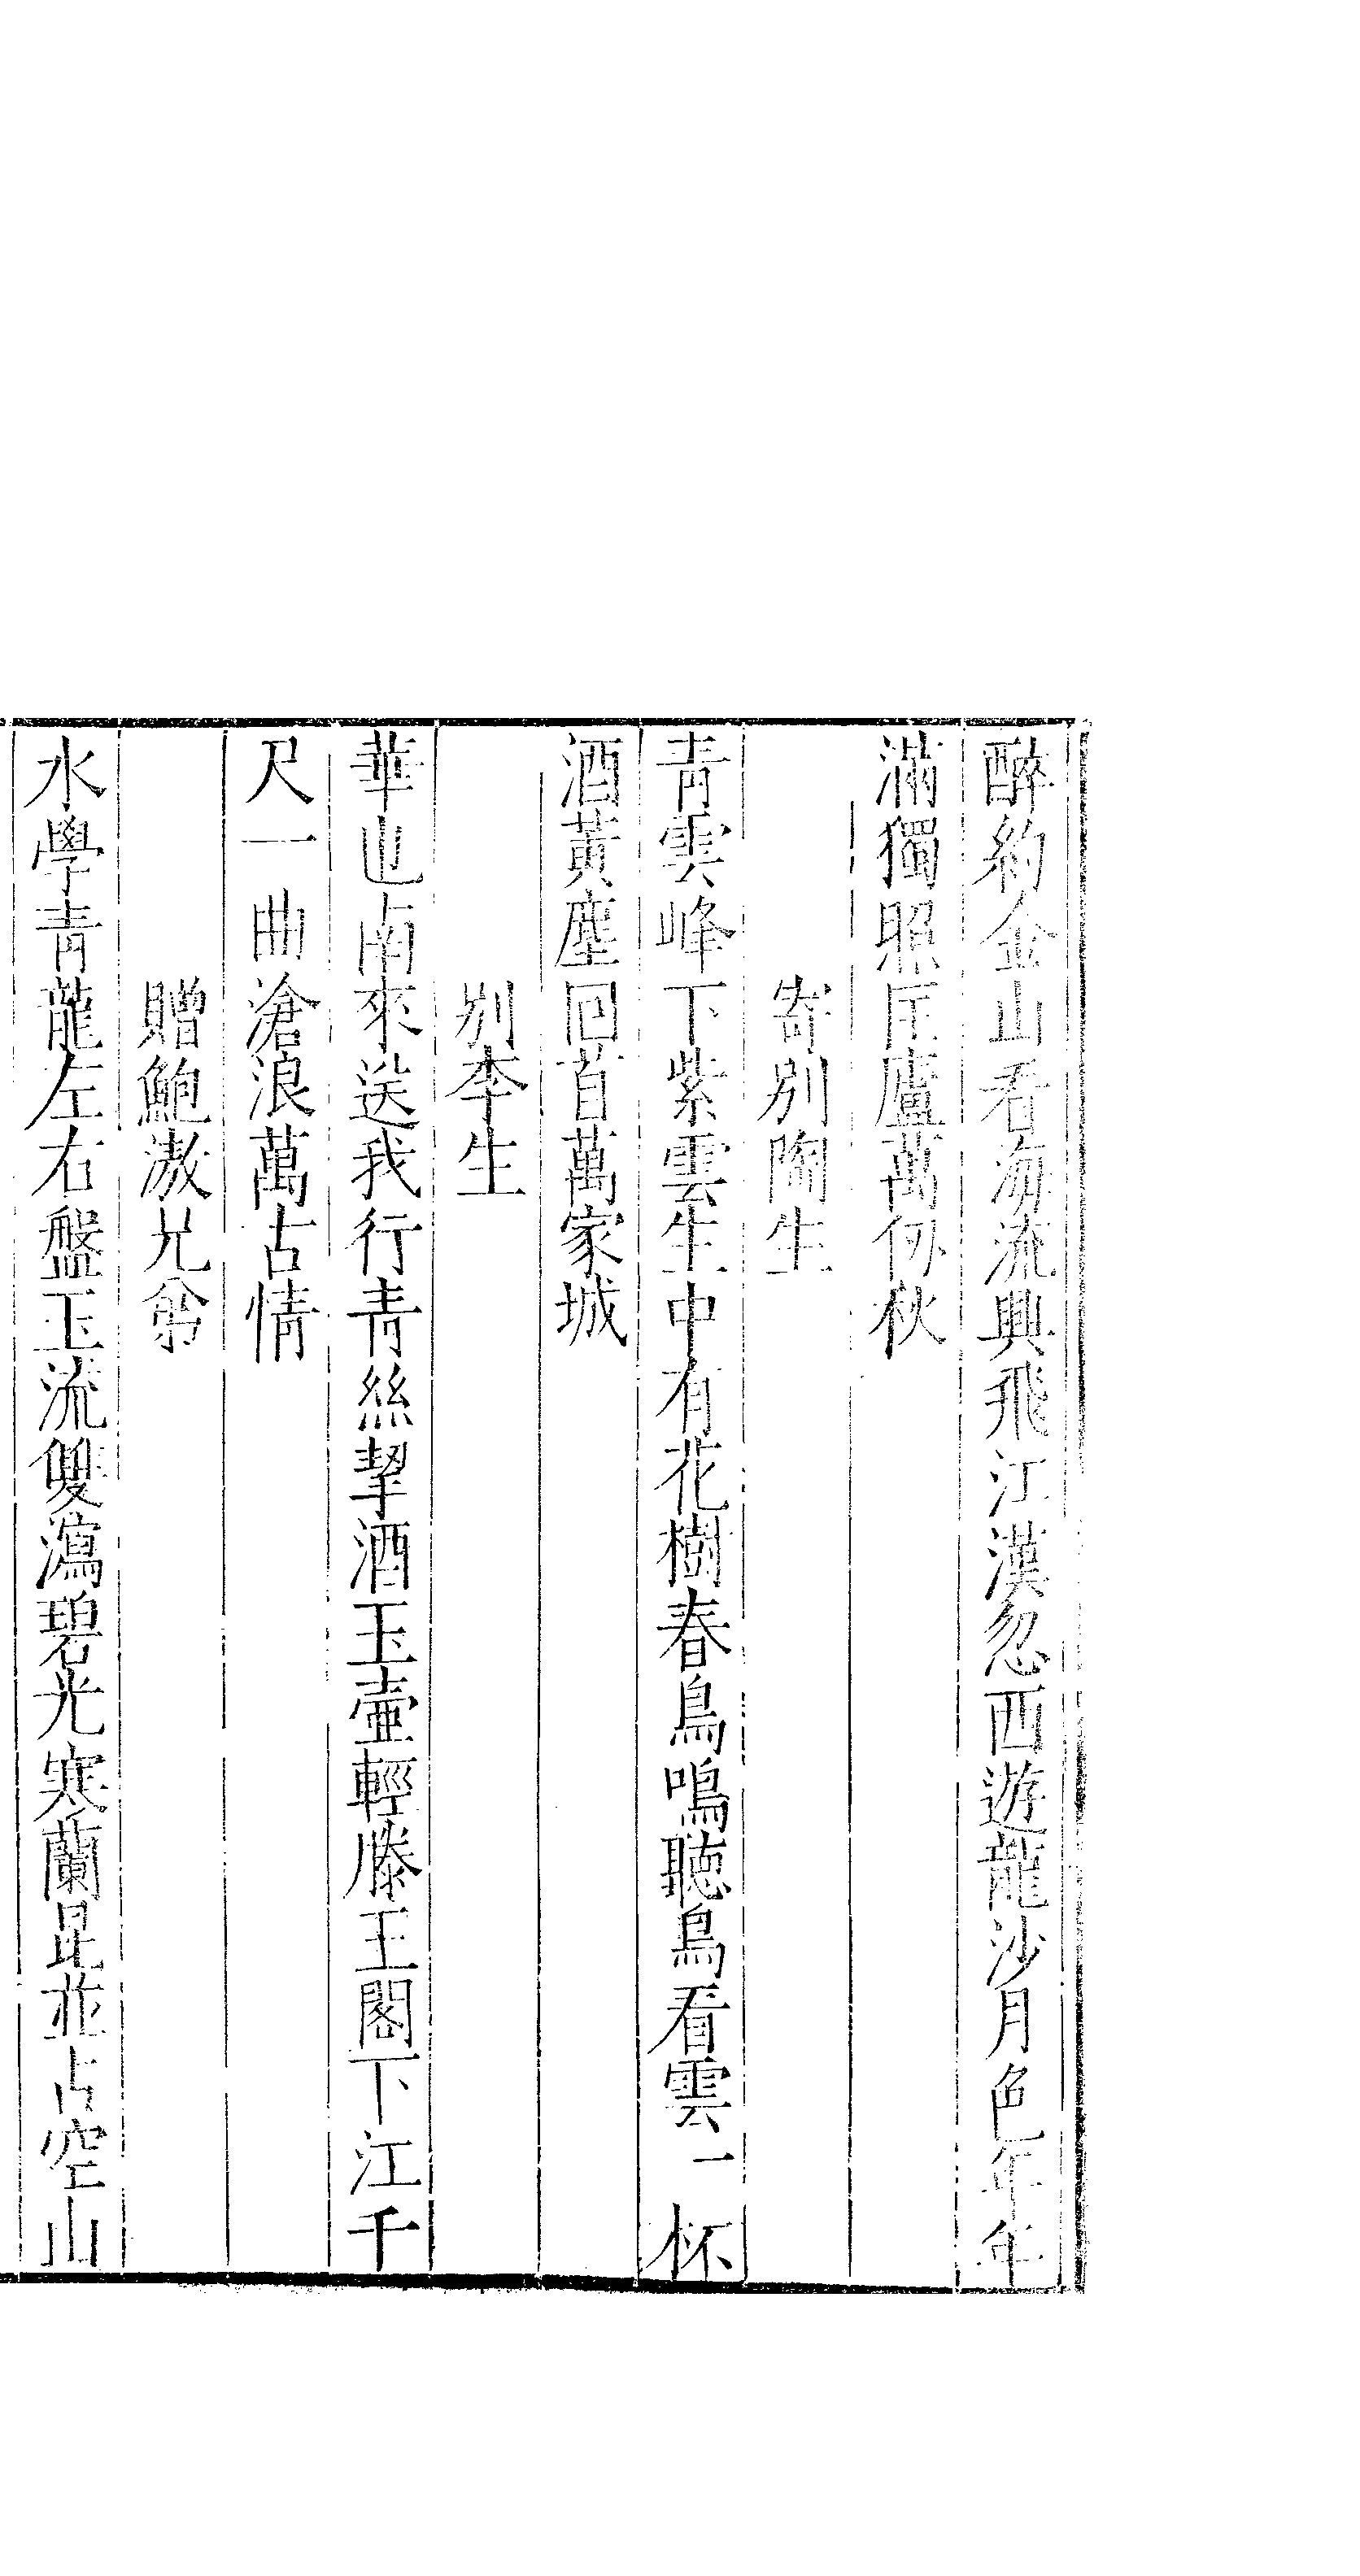 醉約金山看海流興飛江漢忽西遊龍沙月色年年
滿獨照匡廬萬仭秋
寄別陶生
青雲峰下紫雲生中有花樹春鳥鳴聽鳥看雲一杯
酒黃塵回首萬家城
別李生
華也南來送我行青絲挈酒玉壷輕滕王閣下江千
尺一曲滄浪萬古情
贈鮑激兄弟
水學青龍左右盤玉流雙瀉碧光寒蘭昆並占空山